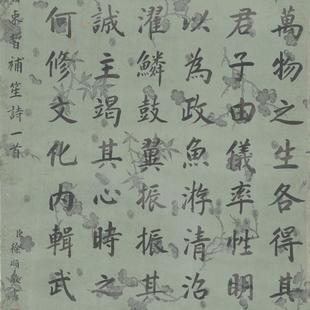 萬物之生各得其
君子由儀率性明
以為政魚游清沼
濯鱗鼓翼振振其
誠主竭其心時之
何修文化內輯武
束皙補笙詩一首
臣徐